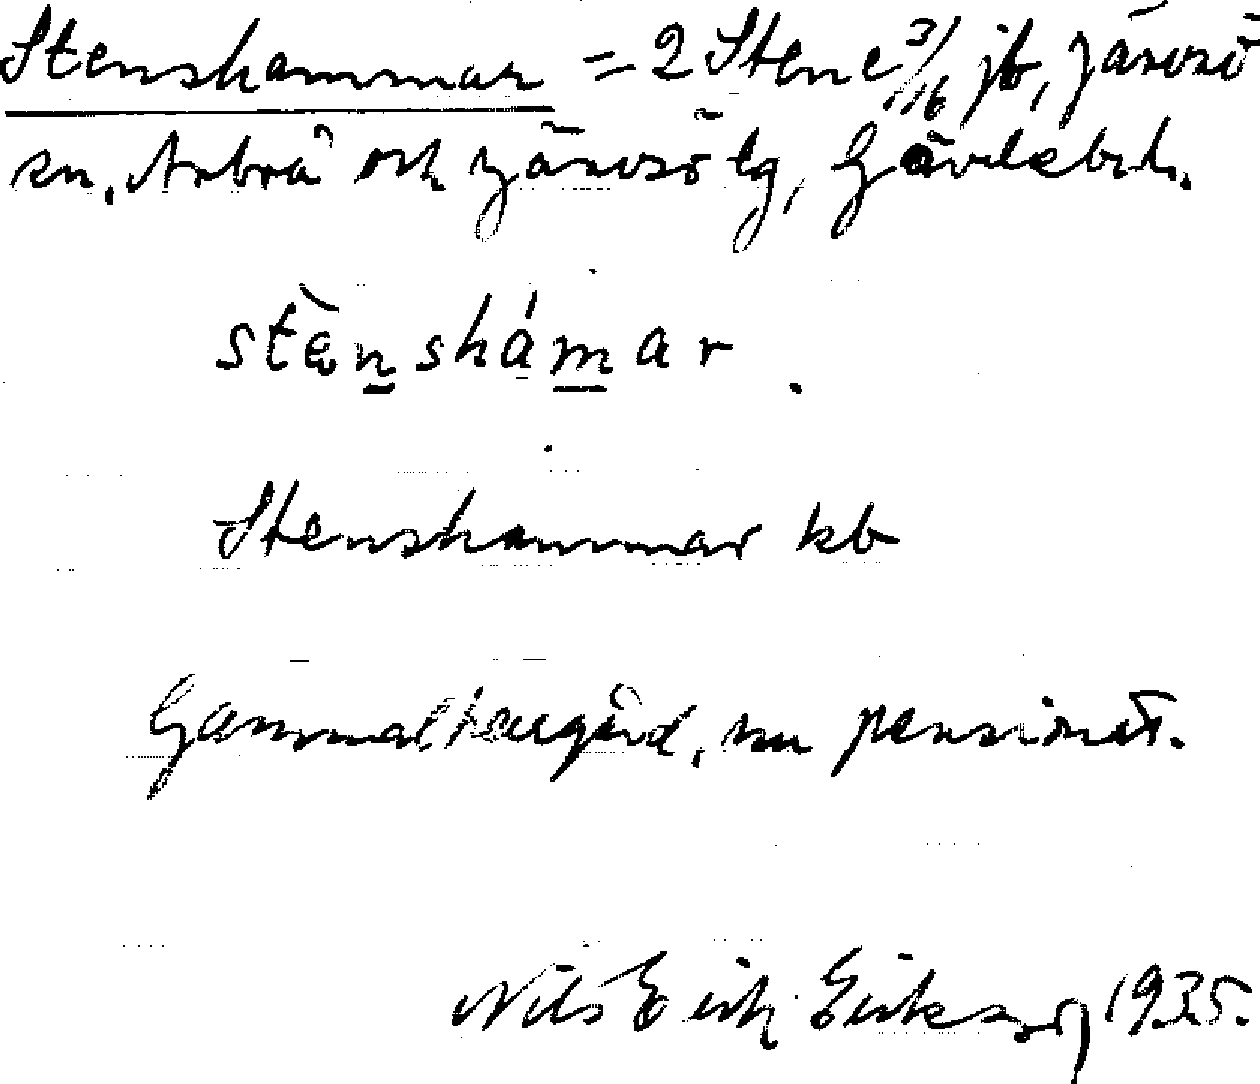 Stenshammar = 2 Stene 3/16 jb, Järvsö
sn, Arbrå och Järvsö tg, Gävlebch.
stènshámar.
Stenshammar kb
Gammal herrgård, nu pensionat.
Nils Erik Erikson 1935.